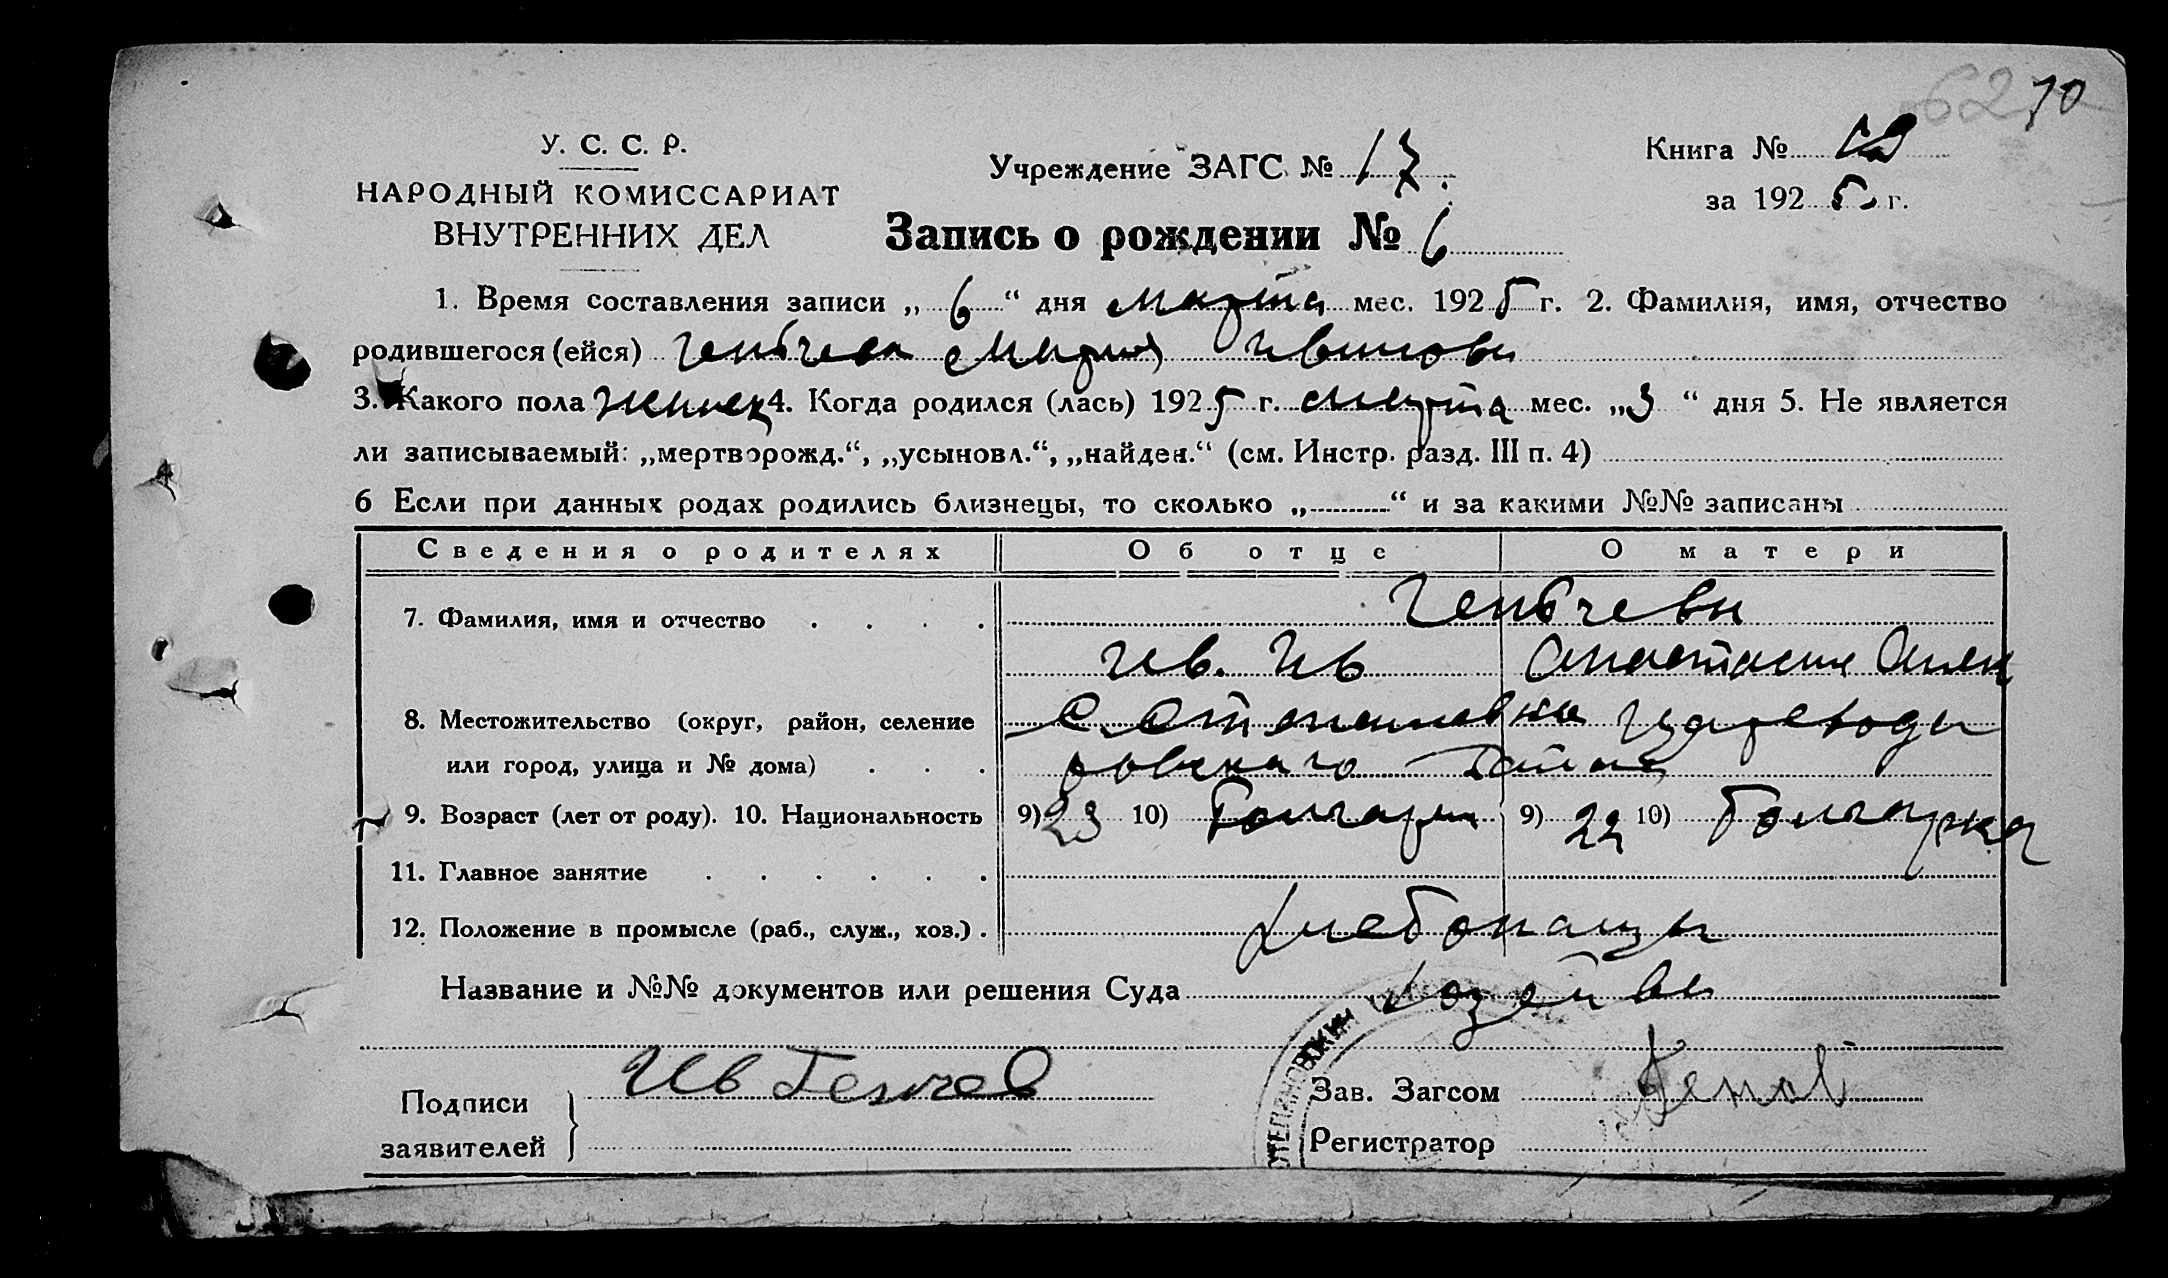 70
У. С. С. Р.
Учреждение ЗАГС № 17.
Книга №
НАРОДНЫЙ КОМИССАРИАТ
за 1925 г.
ВНУТРЕННИХ ДЕЛ
Запись о рождении № 6
1. Время составления записи „ 6 “ дня марта мес. 1925 г. 2. Фамилия, имя, отчество
родившегося (ейся) Генчева Мария Иванова
3. Какого пола женск 4. Когда родился (лась) 1925 г. марта мес. „3 “ дня 5. Не является
ли записываемый: „мертворожд.“, „усыновл.“, „найден.“ (см. Инстр. разд. III п. 4)
6 Если при данных родах родились близнецы, то сколько „..........“ и за какими №№ записаны
Сведения о родителях Об отце О матери
7. Фамилия, имя и отчество
Ив. Ив Анастасия
8. Местожительство (округ, район, селение
с. Степановка Царевода
или город, улица и № дома)
ровского района
9. Возраст (лет от роду). 10. Национальность 9) 23 10) Болгарин 9) 22 10) Болгарка
11. Главное занятие
12. Положение в промысле (раб., служ., хоз.)
Хлебопашцы
Название и №№ документов или решения Суда
хозяйвы
Ив Генчев
Подписи заявителей
Зав. Загсом Генов
Регистратор